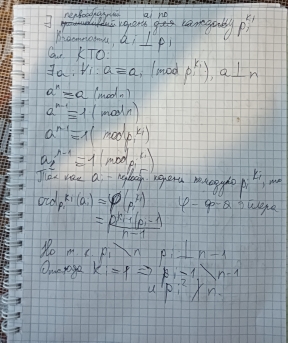 ∃ первообразный a_i по
корень для каждого p_i^{k_i}
В частности, a_i ⊥ p_i
См. КТО:
∃a, ∀i: a ≡ a_i (mod p_i^{k_i}), a ⊥ n
a^n ≡ a (mod n)
a^{n-1} ≡ 1 (mod n)
a^{n-1} ≡ 1 (mod p_i^{k_i})
a_i^{n-1} ≡ 1 (mod p_i^{k_i})
Так как a_i - первообр. корень по модулю p_i^{k_i}, то
ord_{p_i^{k_i}}(a_i) = φ(p_i^{k_i}) φ = ф-я Эйлера
= p_i^{k_i-1}(p_i-1)
n-1
Но т.к. p_i \ n p_i ⊥ n-1
Отсюда k_i = 1 ⇒ p_i-1 \ n-1
и p_i^2 ∤ n.